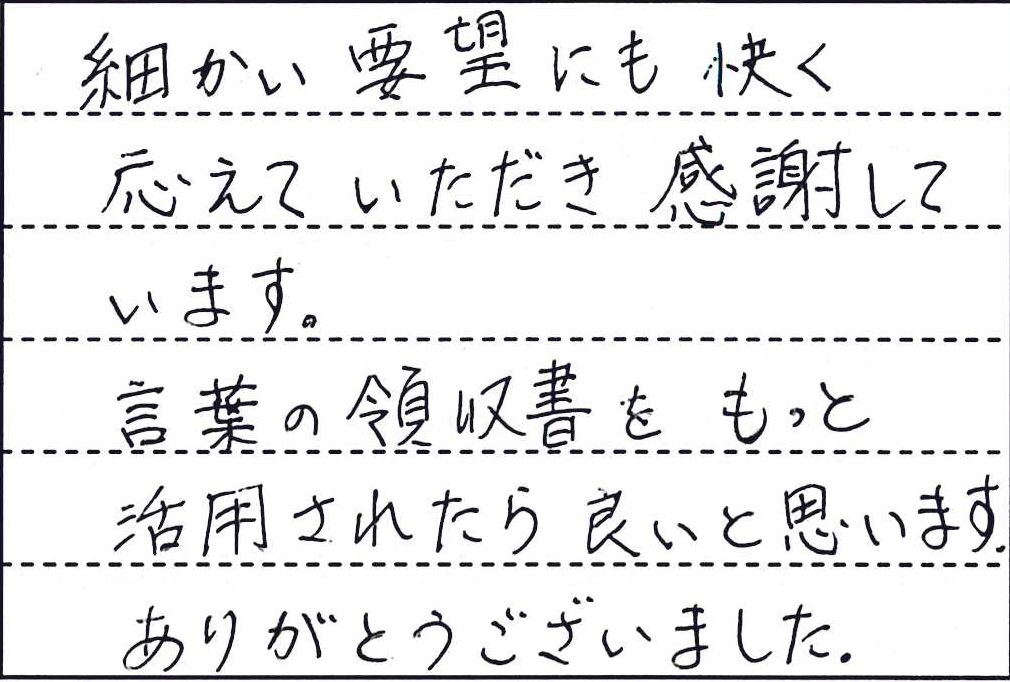 細かい要望にも快く
応えていただき感謝して
います。
言葉の領収書をもっと
活用されたら良いと思います.
ありがとうございました.